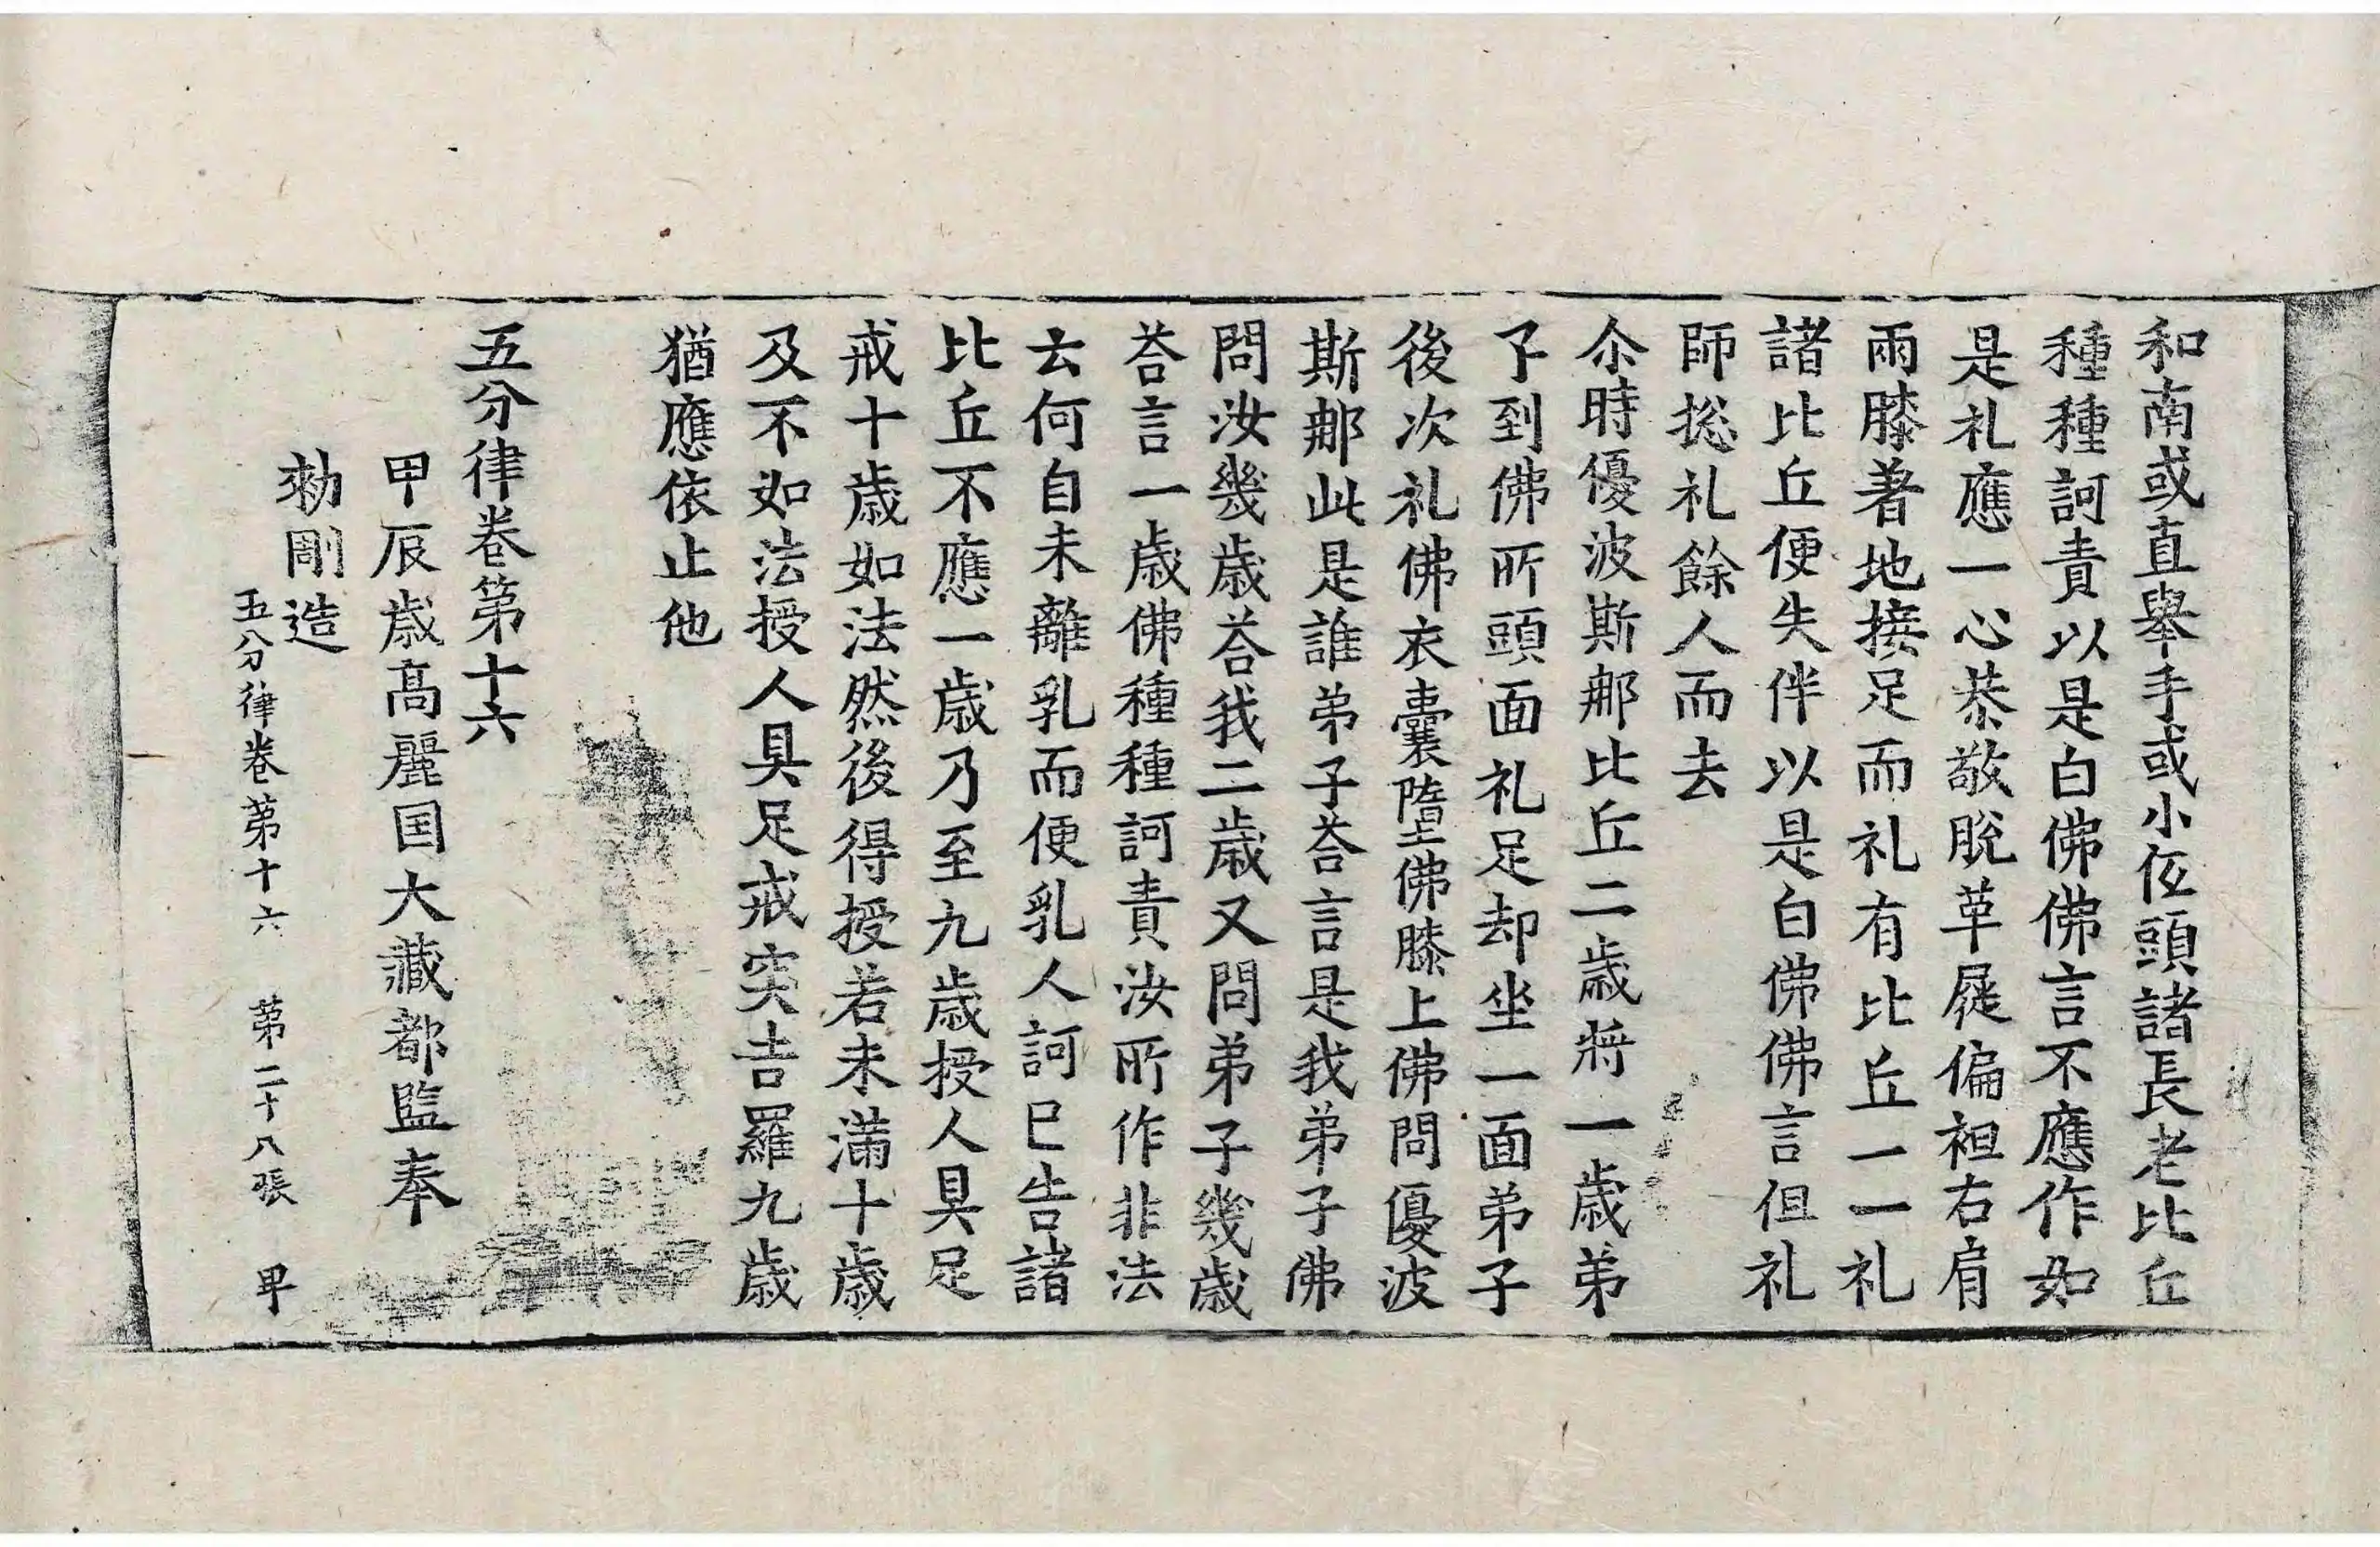 和南或直舉手或小伍頭諸長老比丘
種種訶責以是白佛佛言不應作如
是礼應一心恭敬脫革屣偏袒右肩
兩膝著地接足而礼有比丘一一礼
諸比丘便失伴以是白佛佛言但礼
師捴礼餘人而去
尒時優波斯那比丘二歳將一歳弟
子到佛所頭面礼足却坐一面弟子
後次礼佛衣囊墮佛膝上佛問優波
斯那此是誰弟子荅言是我弟子佛
問汝幾歳荅我二歳又問弟子幾歳
荅言一歳佛種種訶責汝所作非法
云何自未離乳而便乳人訶已告諸
比丘不應一歳乃至九歳授人具足
戒十歳如法然後得授若未滿十歳
及不如法授人具足戒突吉羅九歳
猶應依止他
五分律卷第十六
甲辰歳髙麗国大藏都監奉
勑彫造
五分律卷第十六 第二十八張 甲